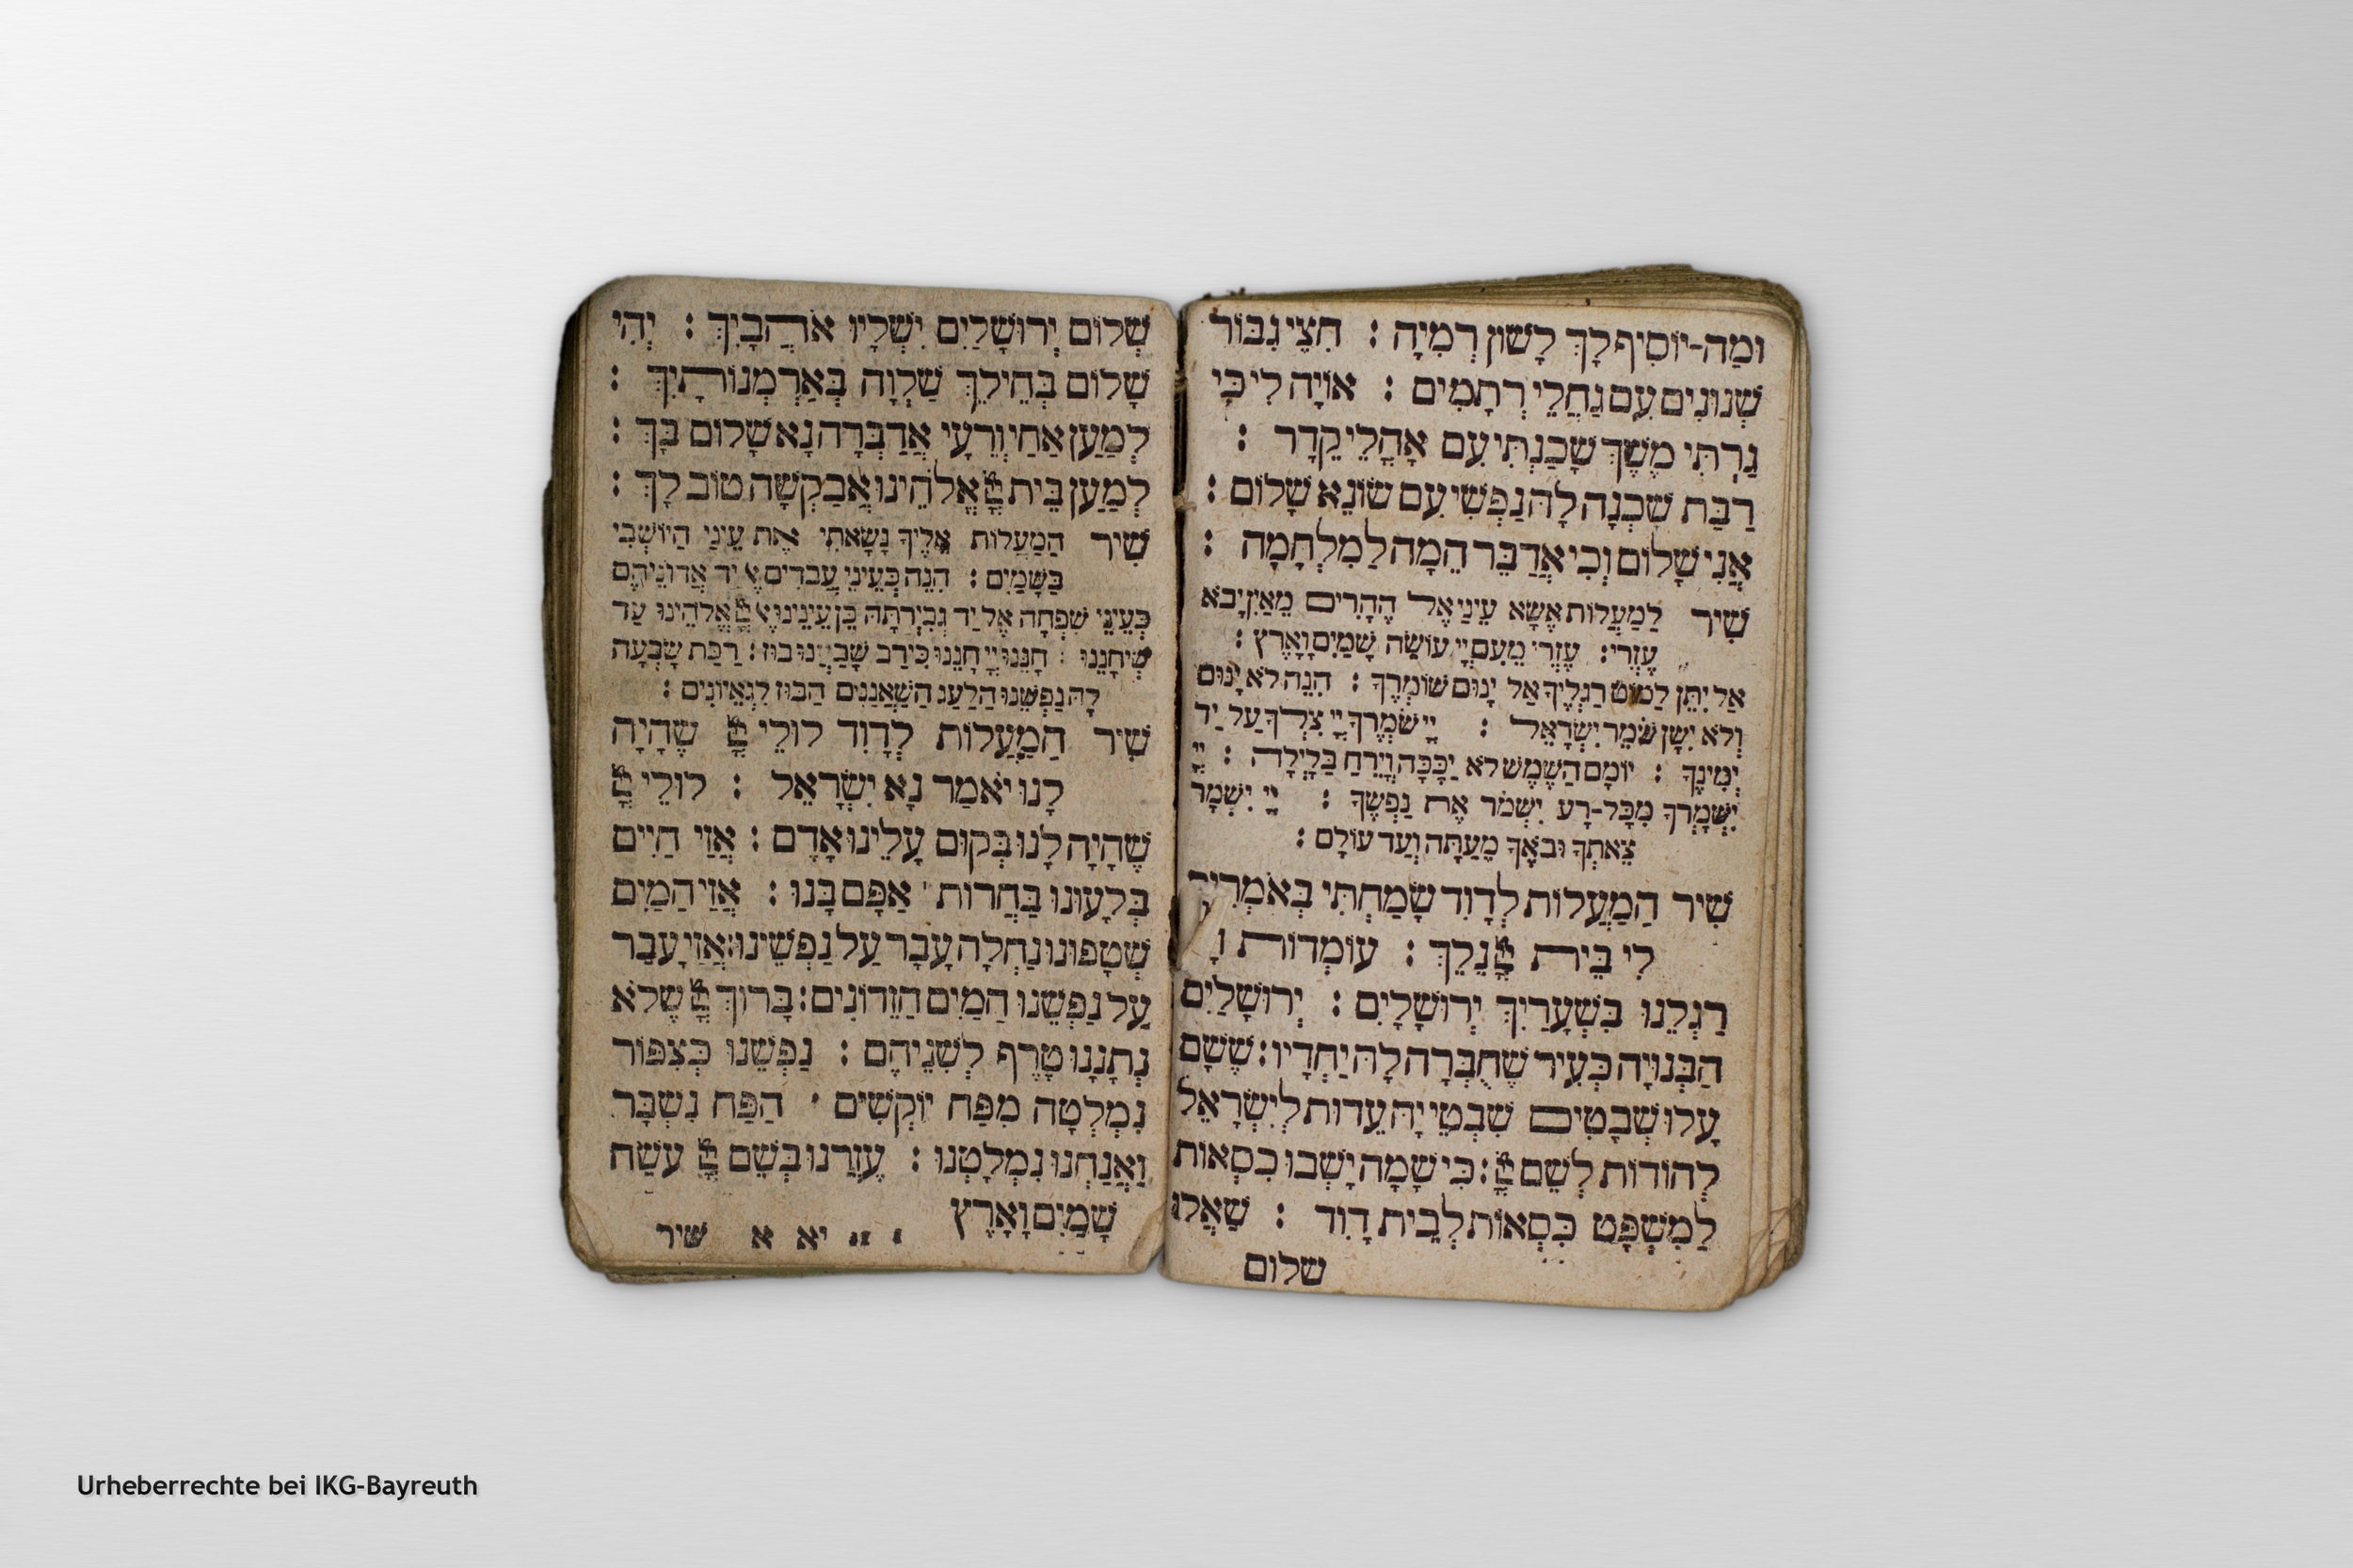 ומַה-יוֹסִיף לָךְ לָשׁוֹן רְמִיָה : חִצֵי גִבּוֹר
שְׁנוּנִים עִם גַחֲלֵי רְתָמִים : אוֹיָה לִי כִּי
גַרְתִּי מֶשֶׁךְ שָׁכַנְתִּי עִם אָהֳלֵי קֵדָר :
רַבַּת שָׁכְנָה לָהּ נַפְשִׁי עִם שׂוֹנֵא שָׁלוֹם :
אֲנִי שָׁלוֹם וְכִי אֲדַבֵּר הֵמָה לַמִלְחָמָה :
שִׁיר לַמַעֲלוֹת אֶשָׂא עֵינַי אֶל הֶהָרִים מֵאַיִן יָבֹא
עֶזְרִי : עֶזְרִי מֵעִם יְיָ עוֹשֵׂה שָׁמַיִם וָאָרֶץ :
אַל יִתֵּן לַמוֹט רַגְלֶיךָ אַל יָנוּם שׁוֹמְרֶךָ : הִנֵה לֹא יָנוּם
וְלֹא יִישָׁן שׁוֹמֵר יִשְׂרָאֵל : יְיָ שֹׁמְרֶךָ יְיָ צִלְךָ עַל יַד
יְמִינֶךָ : יוֹמָם הַשֶׁמֶשׁ לֹא יַכֶּכָּה וְיָרֵחַ בַּלָיְלָה : יְיָ
יִשְׁמָרְךָ מִכָּל-רָע יִשְׁמֹר אֶת נַפְשֶׁךָ : יְיָ יִשְׁמָר
צֵאתְךָ וּבֹאֶךָ מֵעַתָּה וְעַד עוֹלָם :
שִׁיר הַמַעֲלוֹת לְדָוִד שָׂמַחְתִּי בְּאֹמְרִים
לִי בֵּית יְיָ נֵלֵךְ : עוֹמְדוֹת
רַגְלֵנוּ בִּשְׁעָרַיִךְ יְרוּשָׁלָיִם : יְרוּשָׁלַיִם
הַבְּנוּיָה כְּעִיר שֶׁחֻבְּרָה לָהּ יַחְדָיו : שֶׁשָׁם
עָלוּ שְׁבָטִים שִׁבְטֵי יָהּ עֵדוּת לְיִשְׂרָאֵל
לְהוֹדוֹת לְשֵׁם יְיָ : כִּי שָׁמָה יָשְׁבוּ כִסְאוֹת
לַמִשְׁפָּט כִּסְאוֹת לְבֵית דָוִד : שַׁאֲלוּ
שלום
שְׁלוֹם יְרוּשָׁלַיִם יִשְׁלָיוּ אֹהֲבָיִךְ : יְהִי
שָׁלוֹם בְּחֵילֵךְ שַׁלְוָה בְּאַרְמְנוֹתָיִךְ :
לְמַעַן אַחַי וְרֵעָי אֲדַבְּרָה נָא שָׁלוֹם בָּךְ :
לְמַעַן בֵּית יְיָ אֱלֹהֵינוּ אֲבַקְשָׁה טוֹב לָךְ :
שִׁיר הַמַעֲלוֹת אֵלֶיךָ נָשָׂאתִי אֶת עֵינַי הַיוֹשְׁבִי
בַּשָׁמַיִם : הִנֵה כְּעֵינֵי עֲבָדִים אֶל יַד אֲדוֹנֵיהֶם
כְּעֵינֵי שִׁפְחָה אֶל יַד גְבִירְתָּהּ כֵּן עֵינֵינוּ אֶל יְיָ אֱלֹהֵינוּ עַד
שֶׁיְחָנֵנוּ : חָנֵּנוּ יְיָ חָנֵנוּ כִּי רַב שָׂבַעְנוּ בוּז : רַבַּת שָׂבְעָה
לָהּ נַפְשֵׁנוּ הַלַעַג הַשַׁאֲנַנִים הַבּוּז לִגְאֵיוֹנִים :
שִׁיר הַמַעֲלוֹת לְדָוִד לוּלֵי יְיָ שֶׁהָיָה
לָנוּ יֹאמַר נָא יִשְׂרָאֵל : לוּלֵי יְיָ
שֶׁהָיָה לָנוּ בְּקוּם עָלֵינוּ אָדָם : אֲזַי חַיִים
בְּלָעוּנוּ בַּחֲרוֹת אַפָּם בָּנוּ : אֲזַי הַמַיִם
שְׁטָפוּנוּ נַחְלָה עָבָר עַל נַפְשֵׁינוּ : אֲזַי עָבַר
עַל נַפְשֵׁנוּ הַמַיִם הַזֵדוֹנִים : בָּרוּךְ יְיָ שֶׁלֹא
נְתָנָנוּ טֶרֶף לְשִׁנֵיהֶם : נַפְשֵׁנוּ כְּצִפּוֹר
נִמְלְטָה מִפַּח יוֹקְשִׁים הַפַּח נִשְׁבָּר
וַאֲנַחְנוּ נִמְלָטְנוּ : עֶזְרֵנוּ בְּשֵׁם יְיָ עֹשֵׂה
שָׁמַיִם וָאָרֶץ
יא א שיר
Urheberrechte bei IKG-Bayreuth